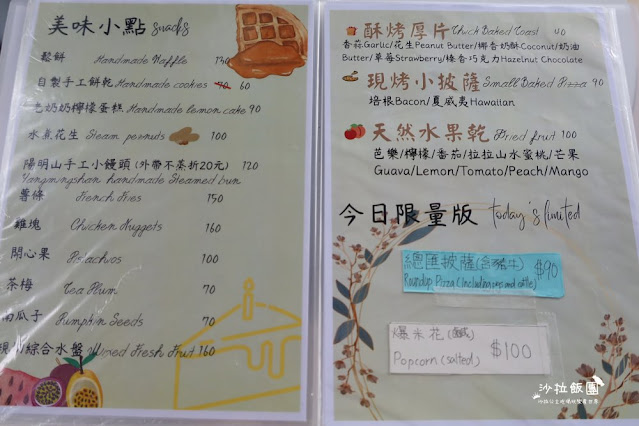 美味小點 snacks
鬆餅 Handmade Waffle 130
自製手工餅乾 Handmade cookies 60
老奶奶檸檬蛋糕 Handmade lemon cake 90
水煮花生 Steam peanuts 100
陽明山手工小饅頭(外帶不蒸折20元) 120
Yangmingshan handmade Steamed bun
薯條 French Fries 150
雞塊 Chicken Nuggets 160
開心果 Pistachios 100
茶梅 Tea Plum 70
南瓜子 Pumpkin Seeds 70
綜合水盤 Mixed Fresh Fruit 160
酥烤厚片 Thick Baked Toast 40
香蒜Garlic/花生Peanut Butter/椰香奶酥Coconut/奶油
Butter/草莓Strawberry/榛香巧克力Hazelnut Chocolate
現烤小披薩 Small Baked Pizza 90
培根Bacon/夏威夷Hawaiian
天然水果乾 Dried fruit 100
芭樂/檸檬/番茄/拉拉山水蜜桃/芒果
Guava/Lemon/Tomato/Peach/Mango
今日限量版 today's limited
總匯披薩(含豬牛) $90
Roundup Pizza (Including pig and cattle)
爆米花(鹹)
Popcorn (salted) $100
沙拉飯團